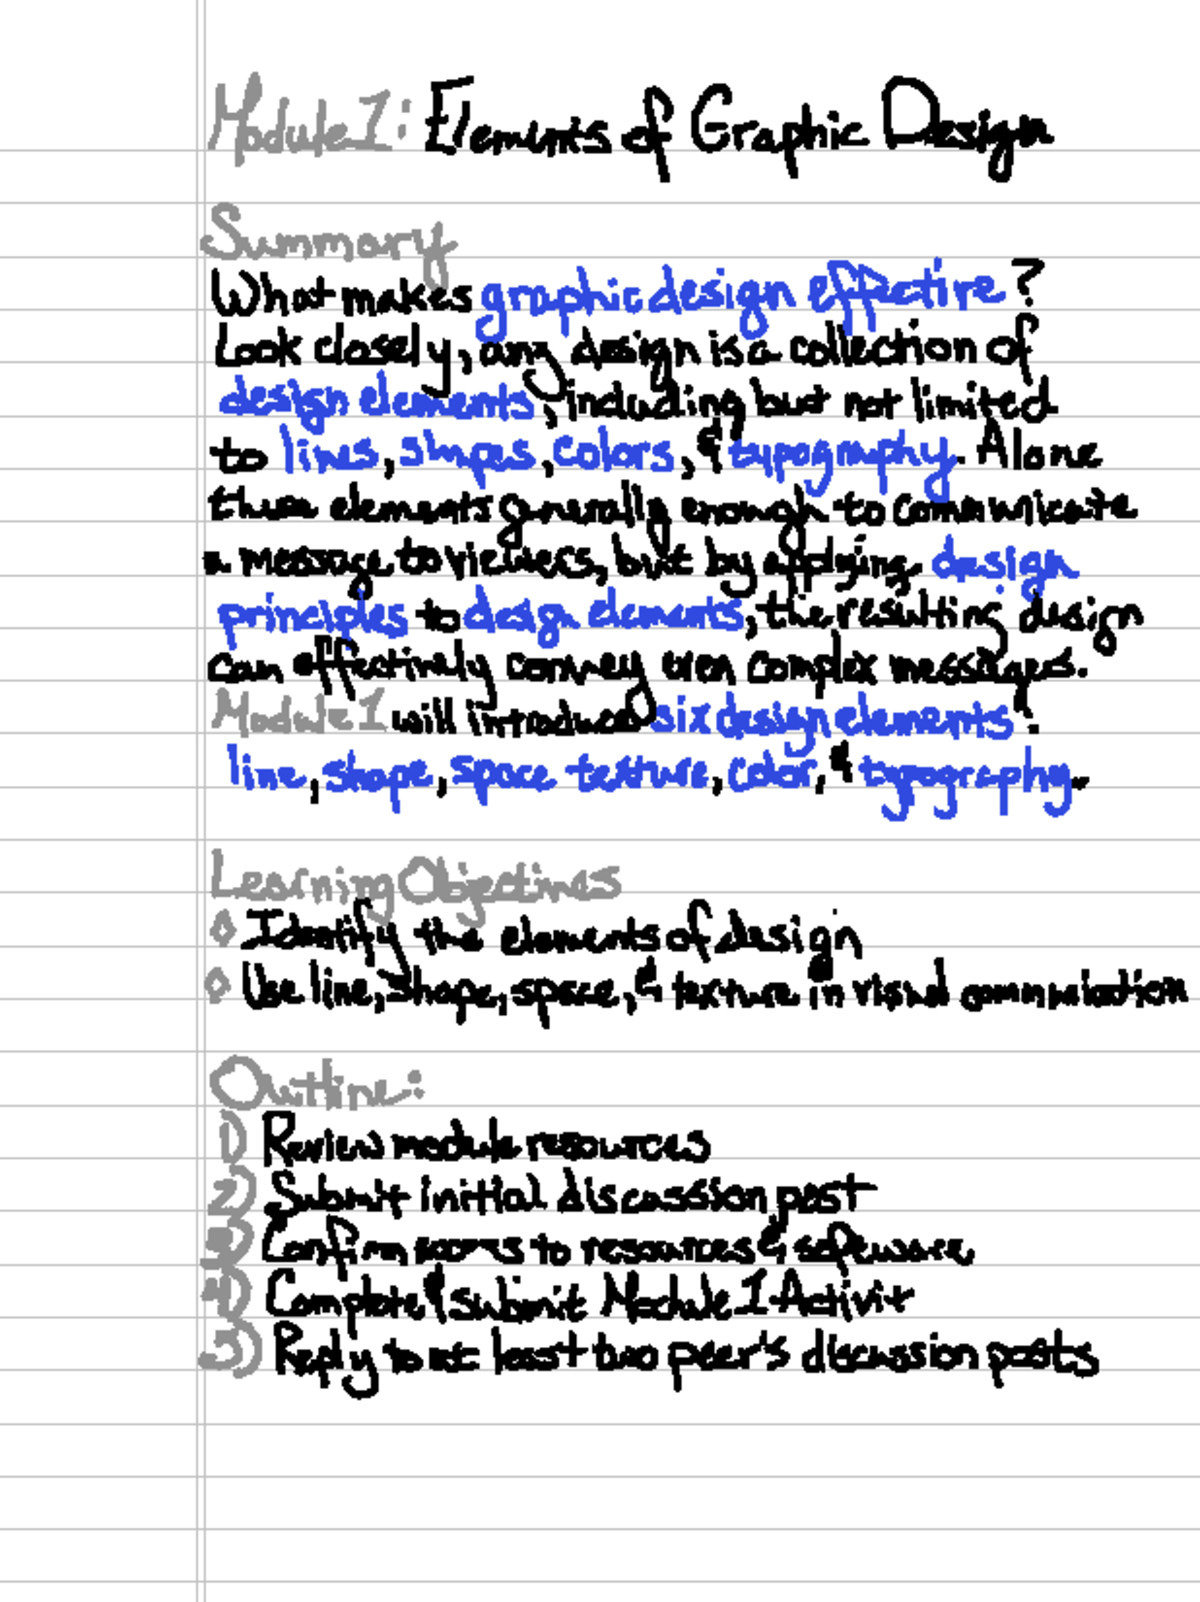 Module 1: Elements of Graphic Design
Summary
What makes graphic design effective?
Look closely, any design is a collection of
design elements, including but not limited
to lines, shapes, colors, & typography. Alone
these elements generally enough to communicate
a message to viewers, but by applying design
principles to design elements, the resulting design
can effectively convey even complex messages.
Module 1 will introduce six design elements:
line, shape, space texture, color, & typography.
Learning Objectives
◊ Identify the elements of design
◊ Use line, shape, space, & texture in visual communication
Outline:
1) Review module resources
2) Submit initial discussion post
3) Confirm access to resources & software
4) Complete & submit Module 1 Activit
5) Reply to at least two peer's discussion posts